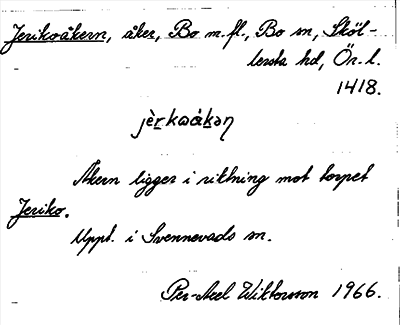 Jerikoåkern, åker, Bo m.fl., Bo sn, Sköl-
lersta hd, Ör. l.
1418.
jèrkoåkən
Åkern ligger i riktning mot torpet
Jeriko.
Uppt. i Svennevads sn.
Per-Axel Wiktorsson 1966.